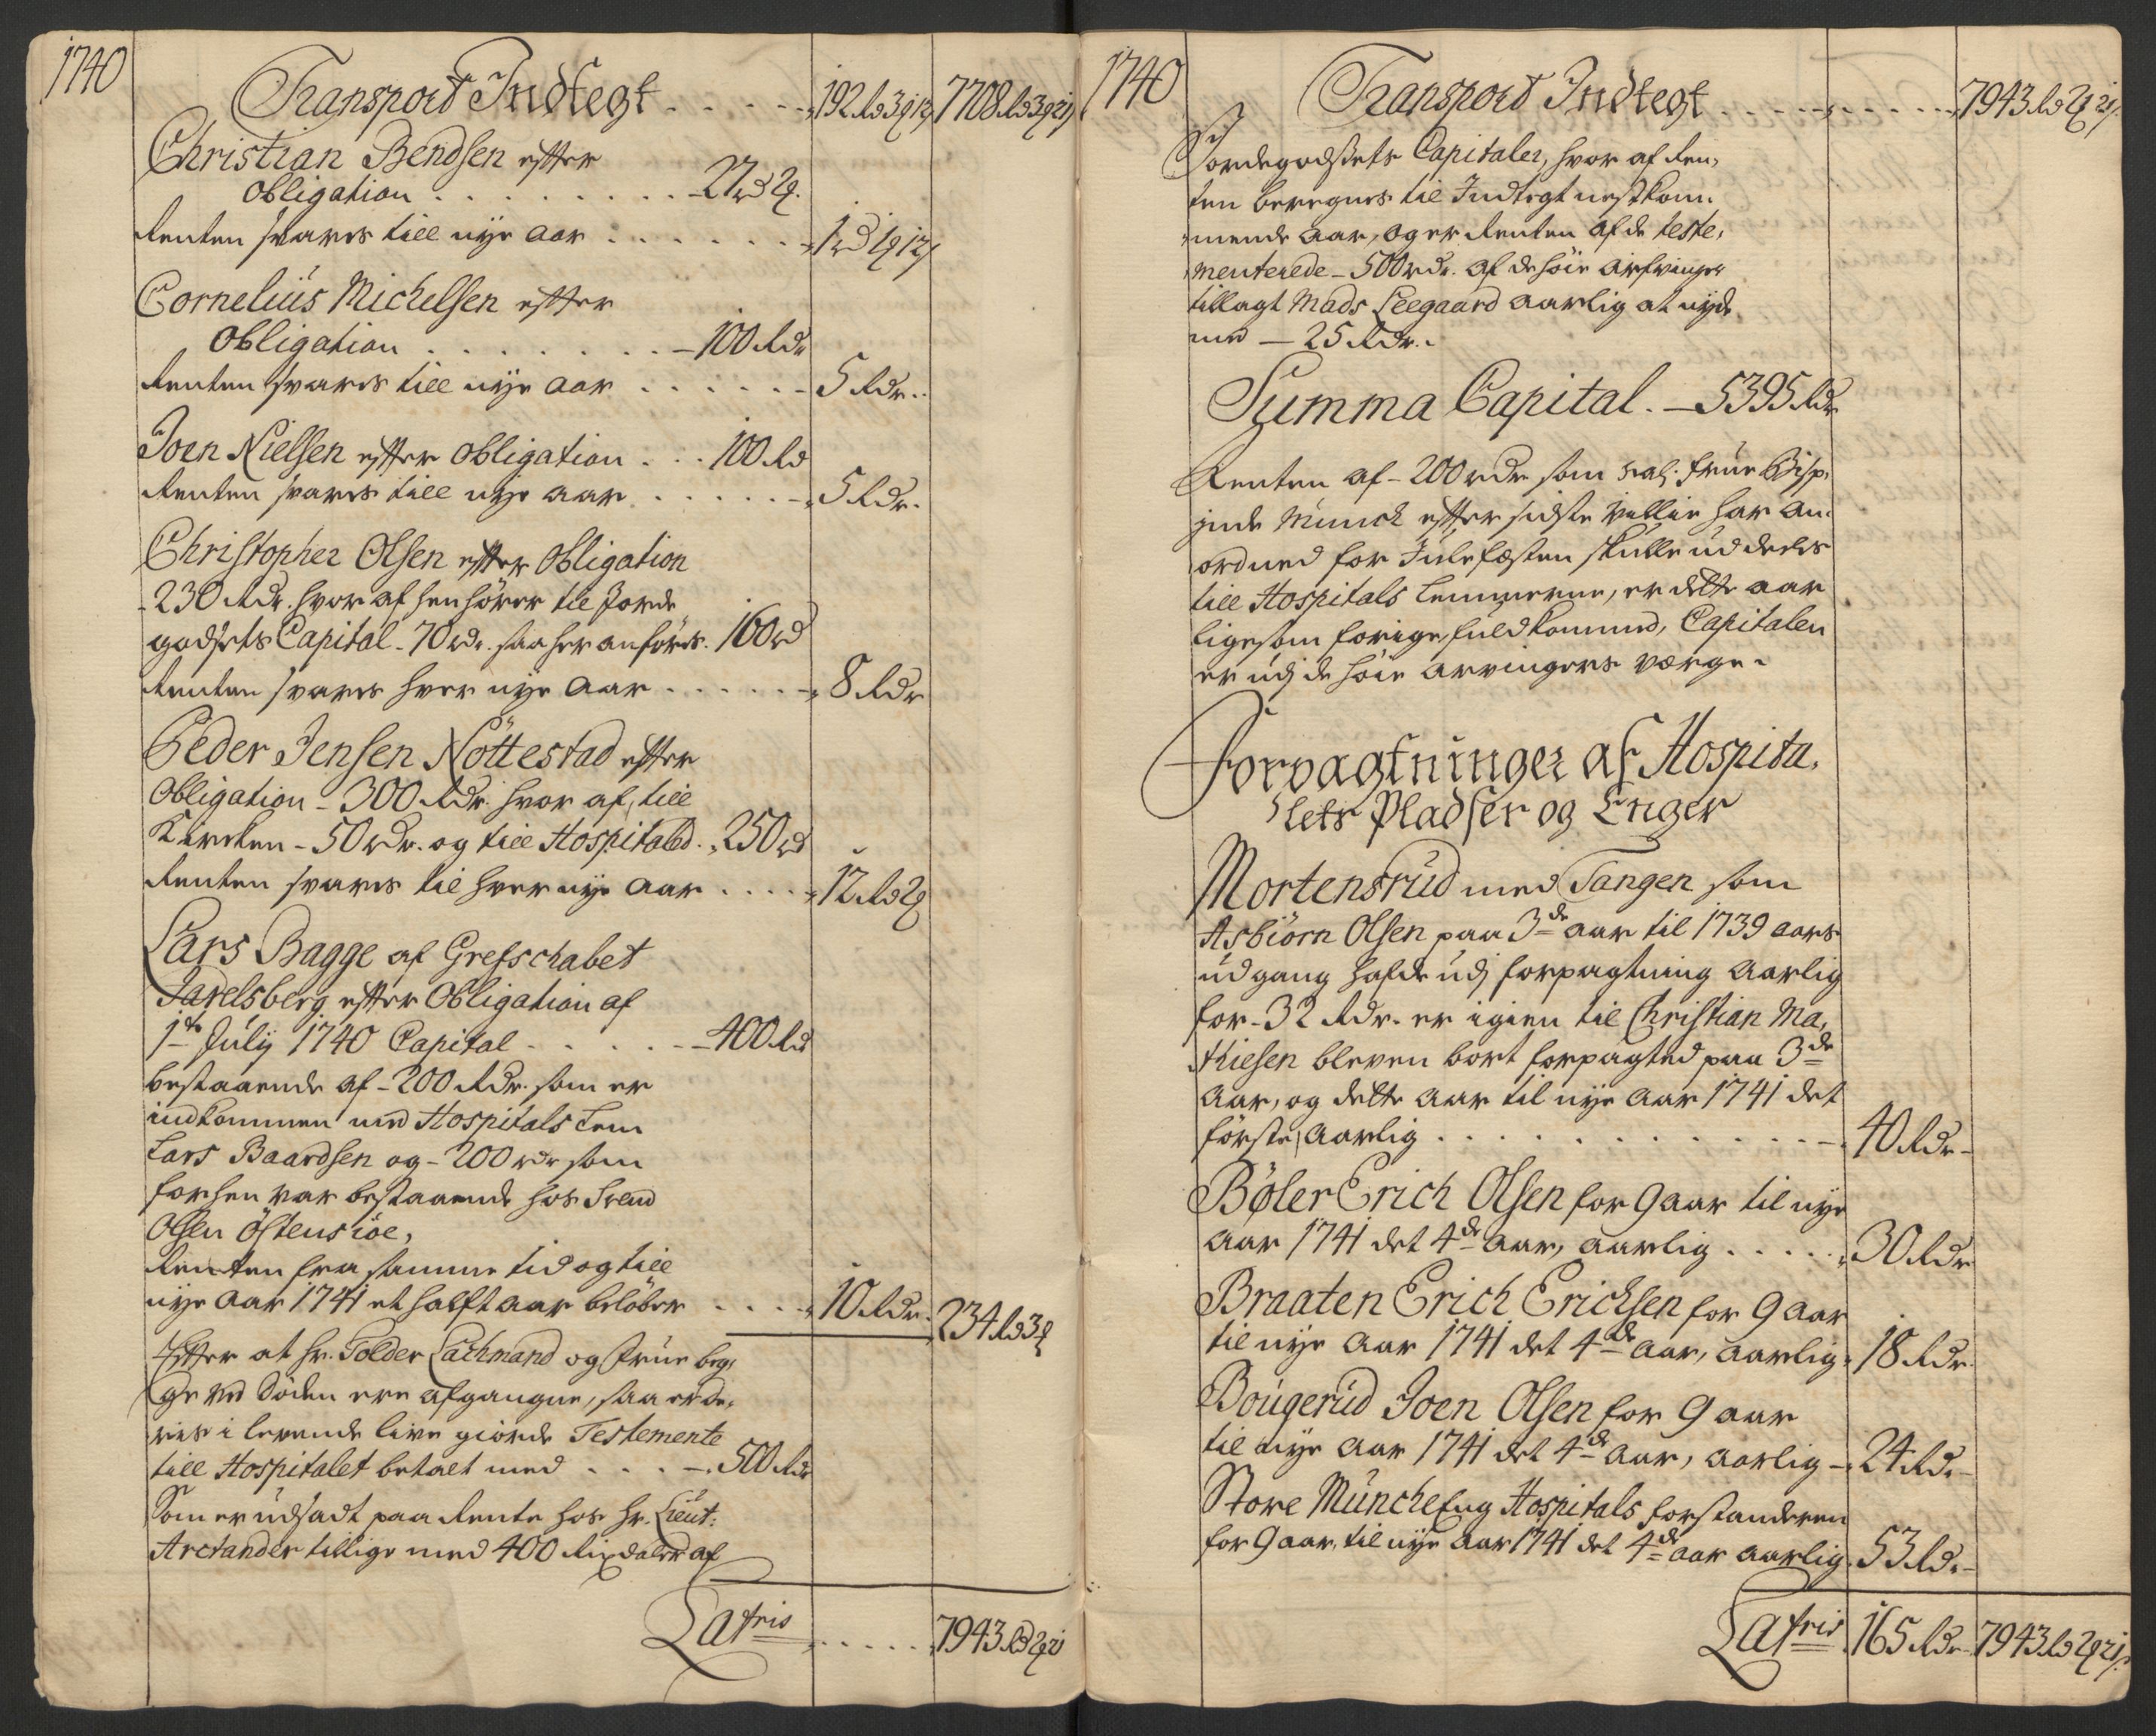 1740
Transport Indtegt . . . . . 192 Rd 3 q 12 s 7708 Rd 3 q 21 s
Christian Bendsen efter
Obligation . . . . . . . . 27 rd 2 q.
Renten svares till nye Aar . . . . . . 1 rd 1 q 12 s
Cornelius Michelsen efter
Obligation . . . . . . . . – 100 Rdr
Renten svares till nye Aar . . . . . . – 5 Rdr.
Joen Nielsen efter Obligation . . . 100 Rd
Renten svares till nye Aar . . . . . . 5 Rdr.
Christopher Olsen efter Obligation
- 230 Rdr. hvor af henhörer til Jorde
godsets Capital - 70 rdr. saa her anföres. 160 rd
Renten svares hver nye Aar . . . . . . 8 Rdr
Peder Jensen Nöttestad efter
Obligation - 300 Rdr. hvor af, till
Kircken - 50 rdr. og till Hospitaled . 250 rd
Renten svares til hver nye Aar . . . . 12 Rd 2 q
Lars Bagge af Grefschabet
Jarelsberg efter Obligation af
1te July 1740 Capital - . . . . . – 400 Rd
bestaaende af - 200 Rdr. som er
indkommen med Hospitals Lem
Lars Baardsen og - 200 rdr som
forhen var bestaaende hos Svend
Olsen Östensiöe,
Renten fra samme tid og till
nye Aar 1741 et halft aar belöber . . . . 10 Rdr. 234 Rd 3 q
Efter at Hr. Tolder Lachmand og Frue beg,
ge ved Döden ere afgangne, saa er de,
res i levende live giorde Testemente
till Hospitalet betalt med . . . – . 500 Rdr
Som er udsadt paa Rente hos Hr. Lieut:
Arctander tillige med 400 Rixdaler af
Latris . . . . . . 7943 Rd 2 q 21
1740
Transport Indtegt . . . . . . . . . . 7943 Rd 2 q 21 s.
Jordegodsets Capitaler, hvor af Ren,
ten beregnes til Indtegt nestkom,
mende Aar, og er Renten af de teste,
menterede - 500 rdr. af de höie Arfvinger
tillagt Mads Leegaard Aarlig at nyde
med — 25 Rdr.
Summa Capital. — 5395 Rdr
Renten af - 200 rdr som Sal: Frue Bisp,
inde Munck efter sidste Villie har An,
ordned for Julefesten skulle uddeles
till Hospitals Lemmerne, er dette aar
ligesom forige, fuldkommed, Capitalen
er udj de höie Arvingers værge.
Forpagtninger af Hospita,
lets Pladser og Enger
Mortensrud med Tangen som
Asbiörn Olsen paa 3de aar til 1739 aars
udgang hafde udj forpagtning Aarlig
for - 32 Rdr. er igien til Christian Ma,
thiesen bleven bort forpagted paa 3de
Aar, og dette Aar til nye Aar 1741 det
förste, Aarlig . . . . . . . . . . . . – 40 Rdr -
Bøler Erich Olsen for 9 aar til nye
Aar 1741 det 4de Aar, aarlig . . . . . 30 Rdr
Braaten Erich Erichsen for 9 aar
til nye Aar 1741 det 4de Aar, aarlig . 18 Rdr.
Bougerud Joen Olsen for 9 aar
til nye Aar 1741 det 4de Aar, aarlig – 24 Rdr -
Store Müncheeng Hospitals forstanderen
for 9 aar, til nye Aar 1741 det 4de aar aarlig . 53 Rdr -
Latris . 165 Rdr - 7943 Rd 2 q 21 s.